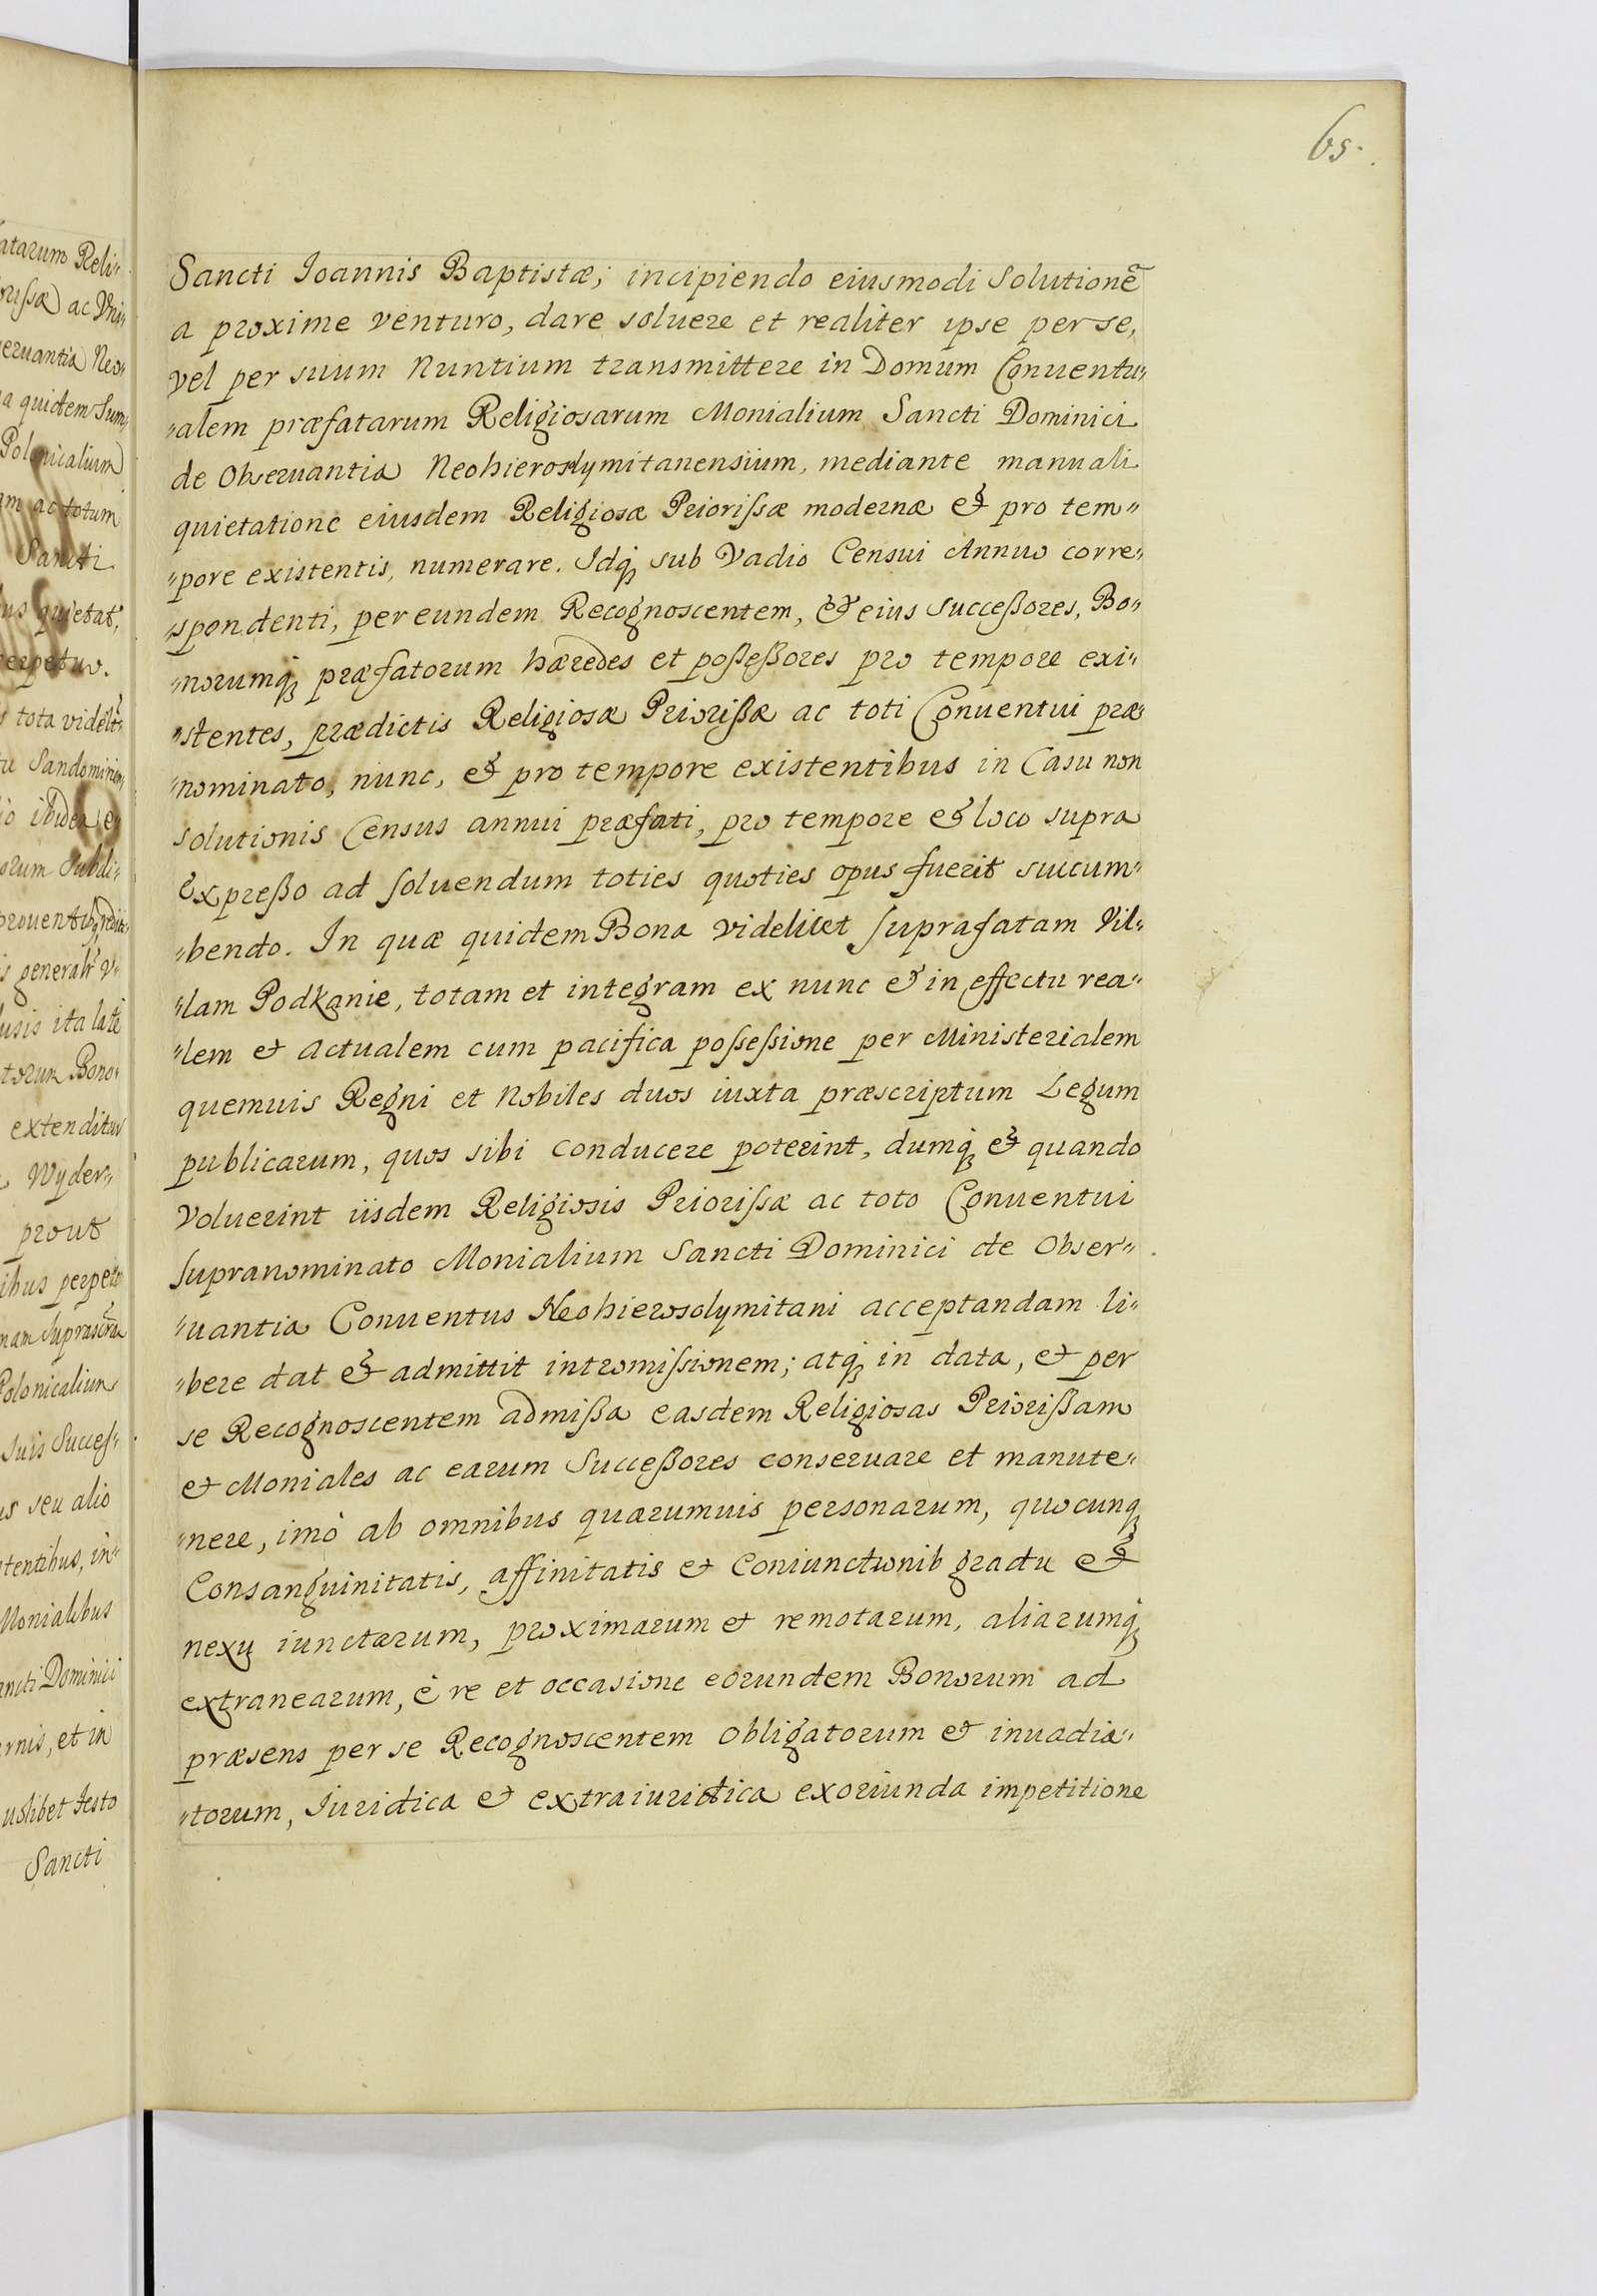 65.
Sancti Ioannis Baptistæ; incipiendo eiusmodi Solutionẽ
a proxime venturo, dare soluere et realiter ipse per se,
vel per suum Nuntium transmittere in Domum Conuentu„
„alem præfatarum Religiosarum Monialium Sancti Dominici
de Obseruantia Neohierosolymitanensium, mediante manuali
quietatione eiusdem Religiosæ Prioriſsæ modernæ & pro tem„
„pore existentis, numerare. Idq̃ sub Vadio Censui Annuo corre„
„spondenti, per eundem Recognoscentem, & eius Succeßores, Bo„
„norumq̃ præfatorum hæredes et poßeßores pro tempore exi„
„stentes, prædictis Religiosæ Priorißæ ac toti Conuentui præ„
„nominato, nunc, & pro tempore existentibus in Casu non
solutionis Census annui præfati, pro tempore & loco supra
Expreßo ad soluendum toties quoties opus fuerit succum„
„bendo. In quæ quidem Bona videlicet suprafatam Vil„
„lam Podkanie, totam et integram ex nunc & in effectu rea„
„lem et Actualem cum pacifica poſseſsione per Ministerialem
quemuis Regni et Nobiles duos iuxta præscriptum Legum
publicarum, quos sibi conducere poterint, dumq̃ & quando
Voluerint iisdem Religiosis Prioriſsæ ac toto Conuentui
supranominato Monialium Sancti Dominici de Obser„
„uantia Conuentus Neohierosolymitani acceptandam li„
„bere dat & admittit intromiſsionem; atq̃ in data, et per
se Recognoscentem admißa easdem Religiosas Priorißam
et Moniales ac earum Succeßores conseruare et manute„
„nere, imò ab omnibus quarumuis personarum, quocunq̃
Consanguinitatis, affinitatis et Coniunctionib gradu &
nexu iunctarum, proximarum et remotarum, aliarumq̃
extranearum, è re et occasione eorundem Bonorum ad
præsens per se Recognoscentem obligatorum et inuadia„
„torum, Iuridica et extraiuridica exoriunda impetitione